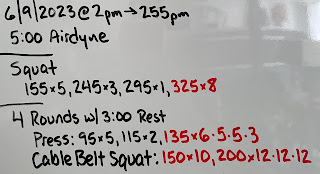 6/9/2023 @ 2pm → 255pm
5:00 Airdyne
Squat
155×5, 245×3, 295×1, 325×8
4 Rounds w/ 3:00 Rest
Press: 95×5, 115×2, 135×6·5·5·3
Cable Belt Squat: 150×10, 200×12·12·12